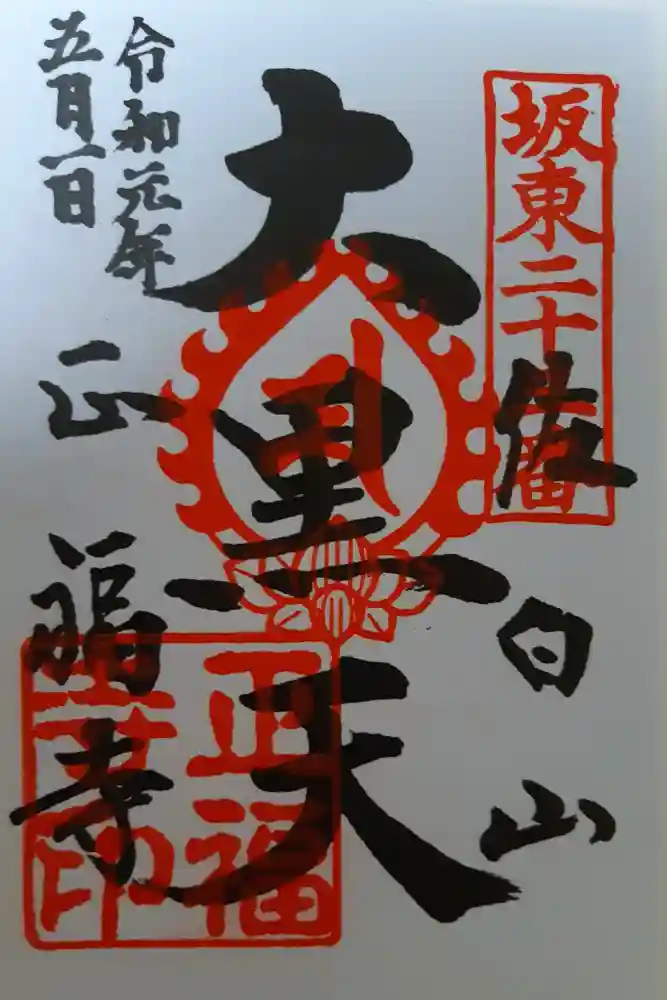 坂東二十三番
佐白山
大黒天
正福寺
令和元年
五月一日
正福
寺印